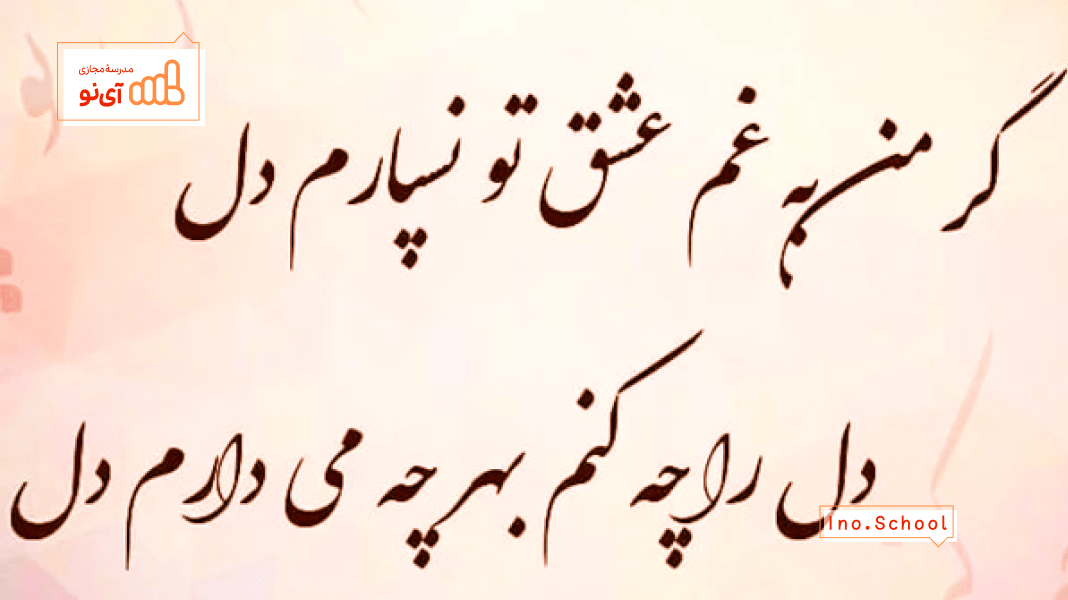 مدرسهٔ مجازی
آی‌نو
گر من به غم عشق تو نسپارم دل
دل را چه کنم بهر چه می دارم دل
Ino.School